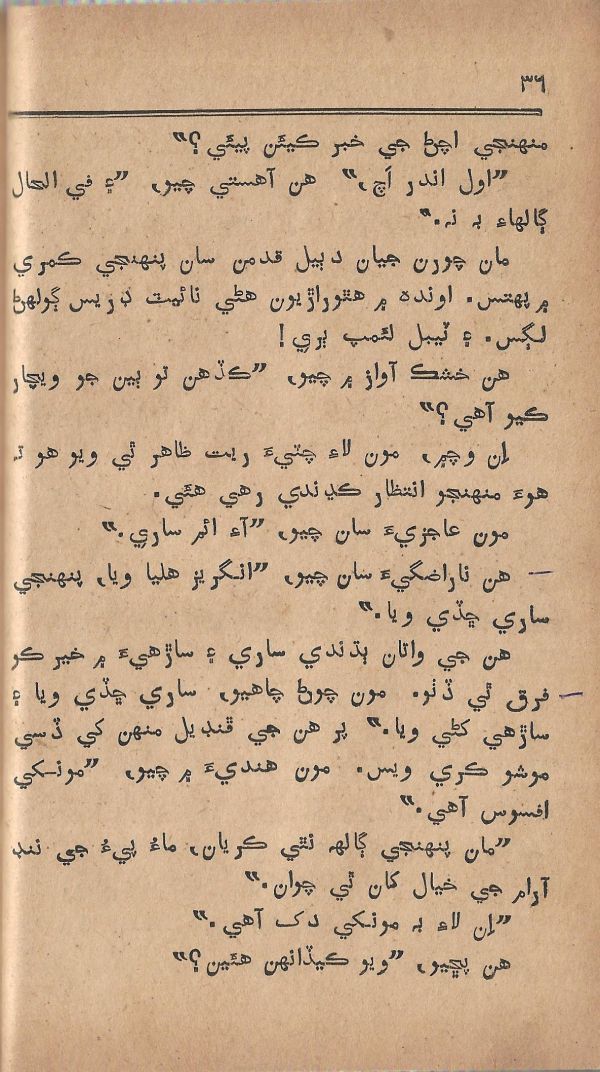 ٣٦
منهنجي اچڻ جي خبر ڪيئن پيئي؟”
”اول اندر اَچ،” هن آهستي چيو، ”۽ في الحال
ڳالهاءِ به نه.”
مان چورن جيان دٻيل قدمن سان پنهنجي ڪمري
۾ پهتس. اونده ۾ هٿوراڙيون هڻي نائيٽ ڊريس ڳولهڻ
لڳس. ۽ ٽيبل لئمپ ٻري!
هن خشڪ آواز ۾ چيو، ”ڪڏهن ٿو ٻين جو ويچار
ڪيو آهي؟”
اِن وچ۾، مون لاءِ چٽيءَ ريت ظاهر ٿي ويو هو ته
هوءَ منهنجو انتظار ڪندي رهي هئي.
مون عاجزيءَ سان چيو، ”آءِ ائم ساري.”
هن ناراضگيءَ سان چيو، ”انگريز هليا ويا، پنهنجي
ساري ڇڏي ويا.”
هن جي واتان ٻڌندي ساري ۽ ساڙهيءَ ۾ خير ڪو
فرق ٿي ڏٺو. مون چوڻ چاهيو، ساري ڇڏي ويا ۽
ساڙهي کڻي ويا.” پر هن جي ڦنڊيل منهن کي ڏسي
موشو ڪري ويس. مون هنديءَ ۾ چيو، ”مونکي
افسوس آهي.”
”مان پنهنجي ڳالهه نٿي ڪريان، ماءُ پيءُ جي ننڊ
آرام جي خيال کان ٿي چوان.”
”اِن لاءِ به مونکي دک آهي.”
هن پڇيو، ”ويو ڪيڏانهن هئين؟”